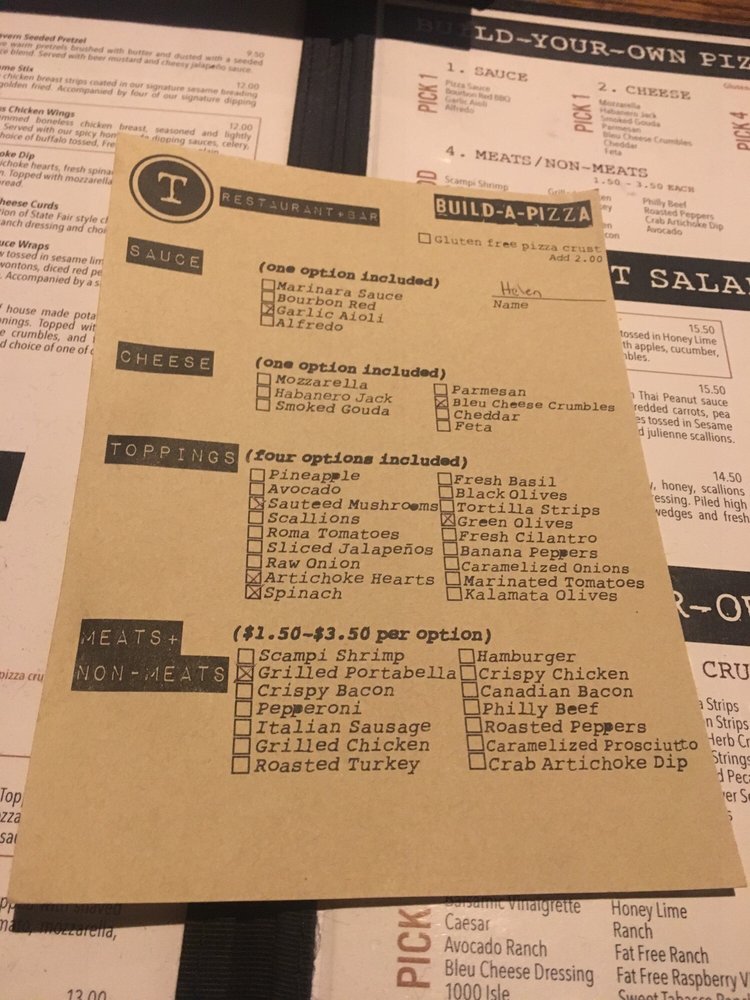 vern Seeded Pretzel
9.50
warm pretzels brushed with butter and dusted with a seeded
blend. Served with beer mustard and cheesy jalapeño sauce.
me Stix
12.00
chicken breast strips coated in our signature sesame breading
golden fried. Accompanied by four of our signature dipping
s Chicken Wings
12.00
boneless chicken breast, seasoned and lightly
Served with our spicy dipping sauces, celery,
choice of buffalo tossed,
oke Dip
ichoke hearts, fresh
Topped with mozzarella
read.
heese Curds
ion of State Fair style
ranch dressing and
uce Wraps
tossed in sesame
wontons, diced red
Accompanied by a
house made
nings. Topped
crumbles, and
d choice of one of
LD-YOUR-OWN PIZ
1. SAUCE
PICK 1
Pizza Sauce
Bourbon Red BBQ
Garlic Aioli
Alfredo
2. CHEESE
PICK 1
Mozzarella
Habanero Jack
Smoked Gouda
Parmesan
Bleu Cheese Crumbles
Cheddar
Feta
PICK 4
4. MEATS/NON-MEATS
1.50 - 3.50 EACH
Scampi Shrimp
Philly Beef
Roasted Peppers
Crab Artichoke Dip
Avocado
T SALA
15.50
tossed in Honey Lime
th apples, cucumber,
bles.
15.50
Thai Peanut sauce
redded carrots, pea
es tossed in Sesame
d julienne scallions.
14.50
, honey, scallions
essing. Piled high
wedges and fresh
T
RESTAURANT+BAR
BUILD-A-PIZZA
Gluten free pizza crust
Add 2.00
Helen
Name
SAUCE
(one option included)
Marinara Sauce
Bourbon Red
Garlic Aioli
Alfredo
CHEESE
(one option included)
Mozzarella
Habanero Jack
Smoked Gouda
Parmesan
Bleu Cheese Crumbles
Cheddar
Feta
TOPPINGS
(four options included)
Pineapple
Avocado
Sauteed Mushrooms
Scallions
Roma Tomatoes
Sliced Jalapeños
Raw Onion
Artichoke Hearts
Spinach
Fresh Basil
Black Olives
Tortilla Strips
Green Olives
Fresh Cilantro
Banana Peppers
Caramelized Onions
Marinated Tomatoes
Kalamata Olives
MEATS+
NON-MEATS
($1.50-$3.50 per option)
Scampi Shrimp
Grilled Portabella
Crispy Bacon
Pepperoni
Italian Sausage
Grilled Chicken
Roasted Turkey
Hamburger
Crispy Chicken
Canadian Bacon
Philly Beef
Roasted Peppers
Caramelized Prosciutto
Crab Artichoke Dip
R-O
CRU
Strips
n Strips
Herb Cr
Strings
pizza cru
mozzarella,
13.00
PICK
Balsamic Vinaigrette
Caesar
Avocado Ranch
Bleu Cheese Dressing
1000 Isle
Honey Lime
Ranch
Fat Free Ranch
Fat Free Raspberry V